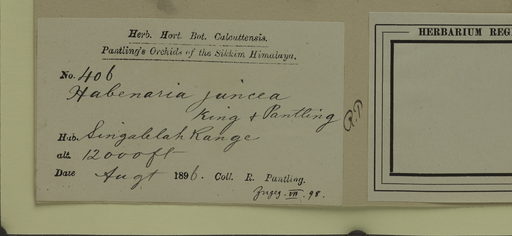 Herb. Hort. Bot. Calcuttensis.
Pantling's Orchids of the Sikkim Himalaya.
No. 406
Habenaria juncea
King & Pantling
Hab. Singalelah Range
alt. 12000ft
Date Augt 1896. Coll. R. Pantling.
VII. 98.
HERBARIUM REG